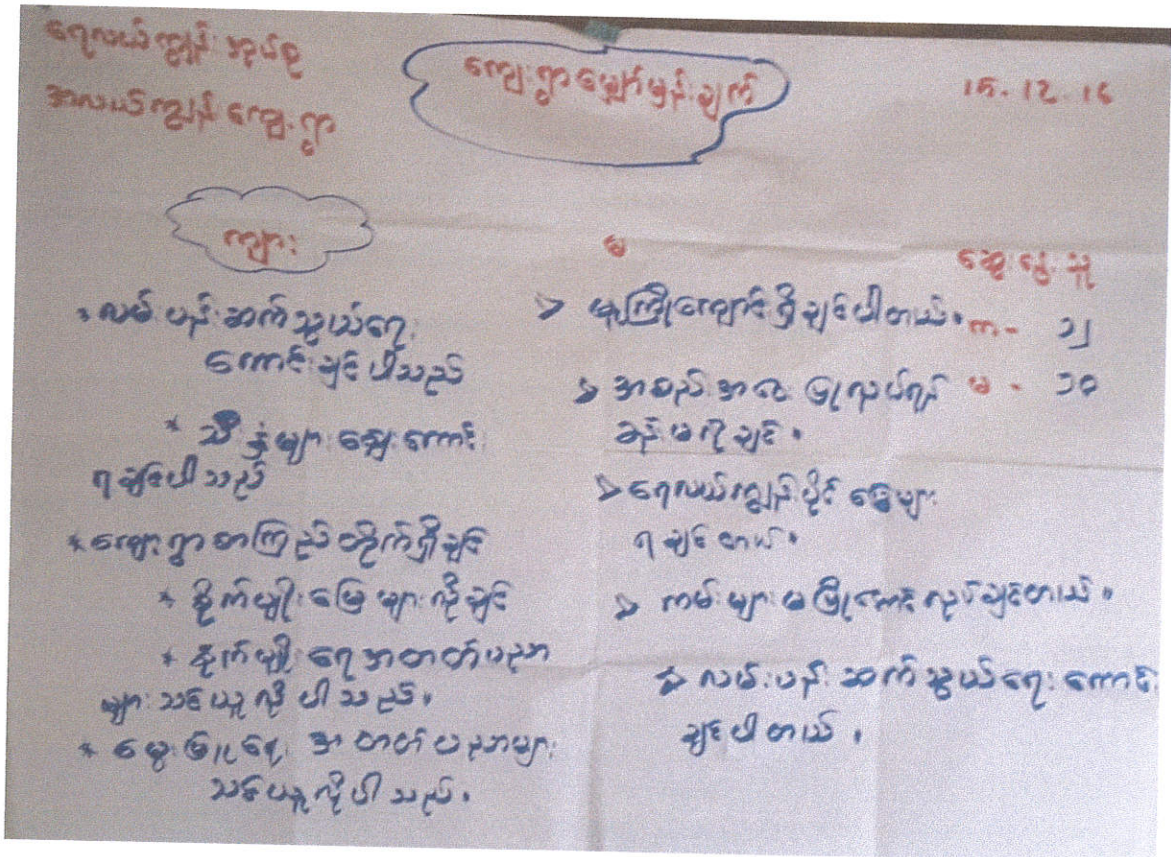 ရေလယ်ကျွန်း အုပ်စု
အလယ်ကျွန်းကျေးရွာ
ကျေးရွာမျှော်မှန်းချက်
15.12.16
ကျား
* လမ်းပန်းဆက်သွယ်ရေး
ကောင်းချင်ပါသည်
* သီးနှံများ ဈေးကောင်း
ရချင်ပါသည်
* ကျေးရွာစာကြည့်တိုက်ရှိချင်
* စိုက်ပျိုးမြေများလိုချင်
* စိုက်ပျိုးရေးအတတ်ပညာ
များသင်ယူလိုပါသည်။
* မွေးမြူရေး အတတ်ပညာများ
သင်ယူလိုပါသည်။
မ
> မူကြိုကျောင်းရှိချင်ပါတယ်။
> အစည်းအဝေးပြုလုပ်ရန်
ခန်းမလိုချင်။
> ရေလယ်ကျွန်းပိုင်မြေများ
ရချင်တယ်။
> ကမ်းများမပြိုအောင်လုပ်ချင်တယ်။
> လမ်းပန်းဆက်သွယ်ရေးကောင်း
ချင်ပါတယ်။
ဆွေးနွေးသူ
ကျား - ၁၂
မ - ၁၀